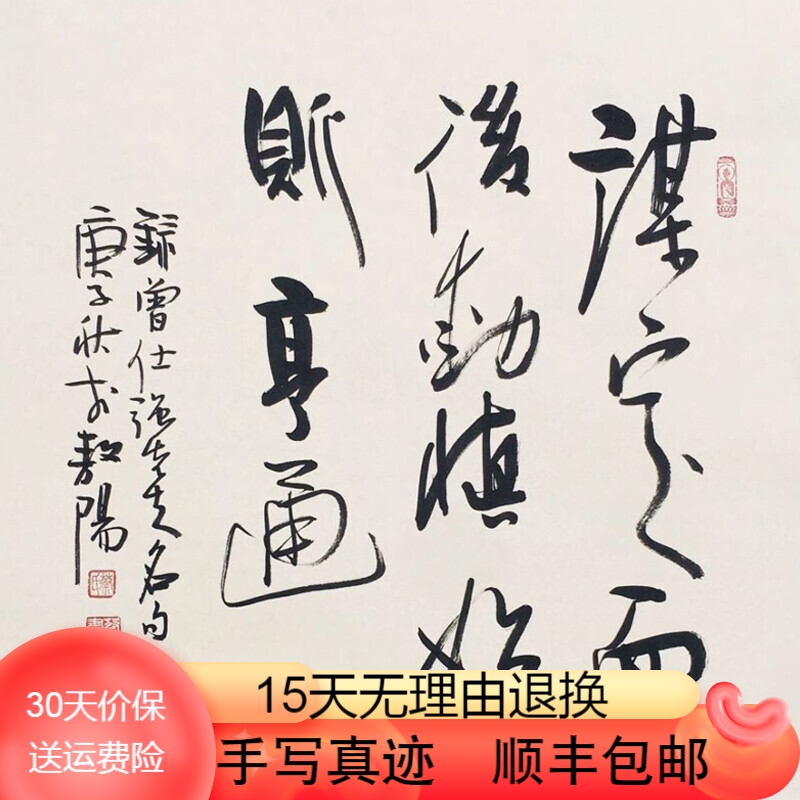 謀定而
後動慎始
則亨通
錄曾仕强先生名句
庚子秋於敖陽
30天价保
送运费险
15天无理由退换
手写真迹 顺丰包邮